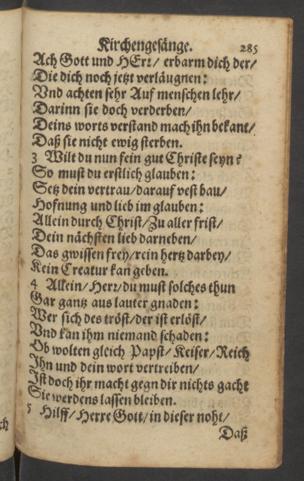 Kirchengesänge. 285
Ach Gott und HErr/ erbarm dich der/
Die dich noch jetzt verläugnen:
Vnd achten sehr Auf menschen lehr/
Darinn sie doch verderben/
Deins worts verstand mach ihn bekant/
Daß sie nicht ewig sterben.
3 Wilt du nun fein gut Christe seyn?
So must du erstlich glauben:
Setz dein vertrau/ darauf vest bau/
Hofnung und lieb im glauben:
Allein durch Christ/ Zu aller frist/
Dein nächsten lieb darneben/
Das gwissen frey/ rein hertz darbey/
Kein Creatur kañ geben.
4 Allein/ Herr/ du must solches thun
Gar gantz aus lauter gnaden:
Wer sich des tröst/ der ist erlöst/
Vnd kan ihm niemand schaden:
Ob wolten gleich Papst/ Keiser/ Reich
Ihn und dein wort vertreiben/
Ist doch ihr macht gegn dir nichts gacht
Sie werdens lassen bleiben.
5 Hilff/ Herre Gott/ in dieser noht/
Daß